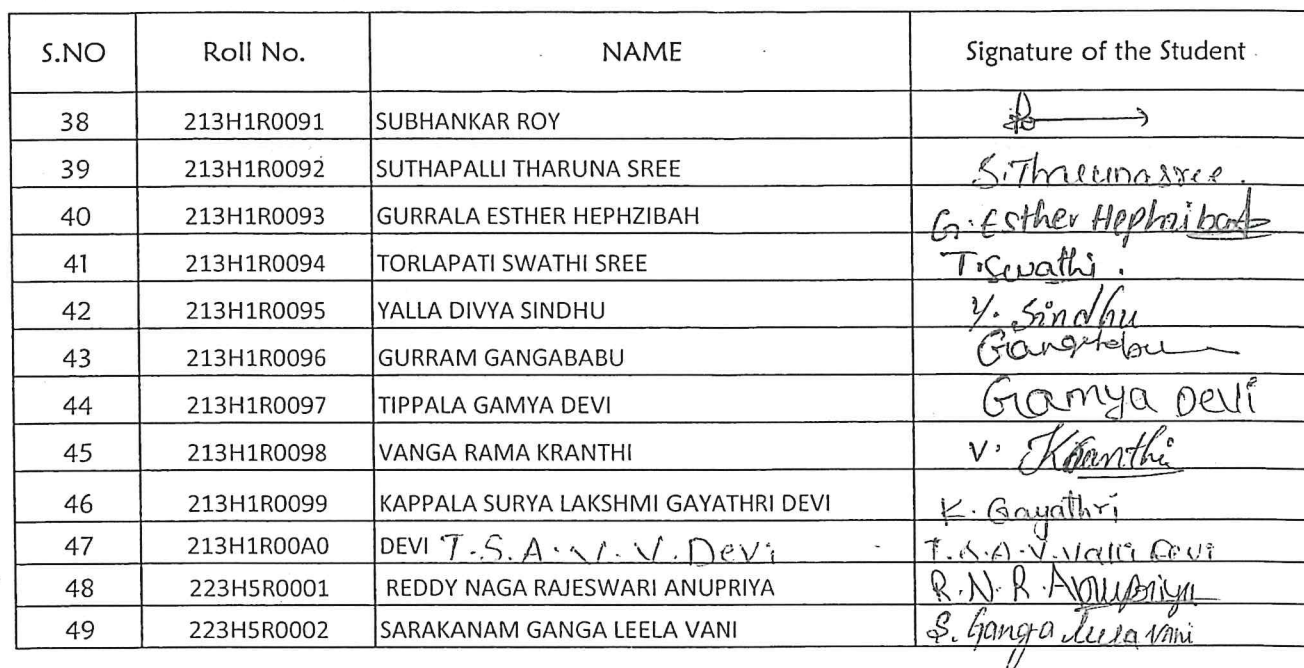 S.NO Roll No. NAME Signature of the Student
38 213H1R0091 SUBHANKAR ROY
39 213H1R0092 SUTHAPALLI THARUNA SREE S.Tharunasree.
40 213H1R0093 GURRALA ESTHER HEPHZIBAH G. Esther Hephzibah
41 213H1R0094 TORLAPATI SWATHI SREE T.Swathi.
42 213H1R0095 YALLA DIVYA SINDHU Y. Sindhu
43 213H1R0096 GURRAM GANGABABU Gangababu
44 213H1R0097 TIPPALA GAMYA DEVI Gamya Devi
45 213H1R0098 VANGA RAMA KRANTHI V. Kranthi
46 213H1R0099 KAPPALA SURYA LAKSHMI GAYATHRI DEVI K. Gayathri
47 213H1R00A0 DEVI T.S.A.V.V.Devi T.S.A.V.Valli Devi
48 223H5R0001 REDDY NAGA RAJESWARI ANUPRIYA R.N.R.Anupriya
49 223H5R0002 SARAKANAM GANGA LEELA VANI S. Ganga Leela Vani